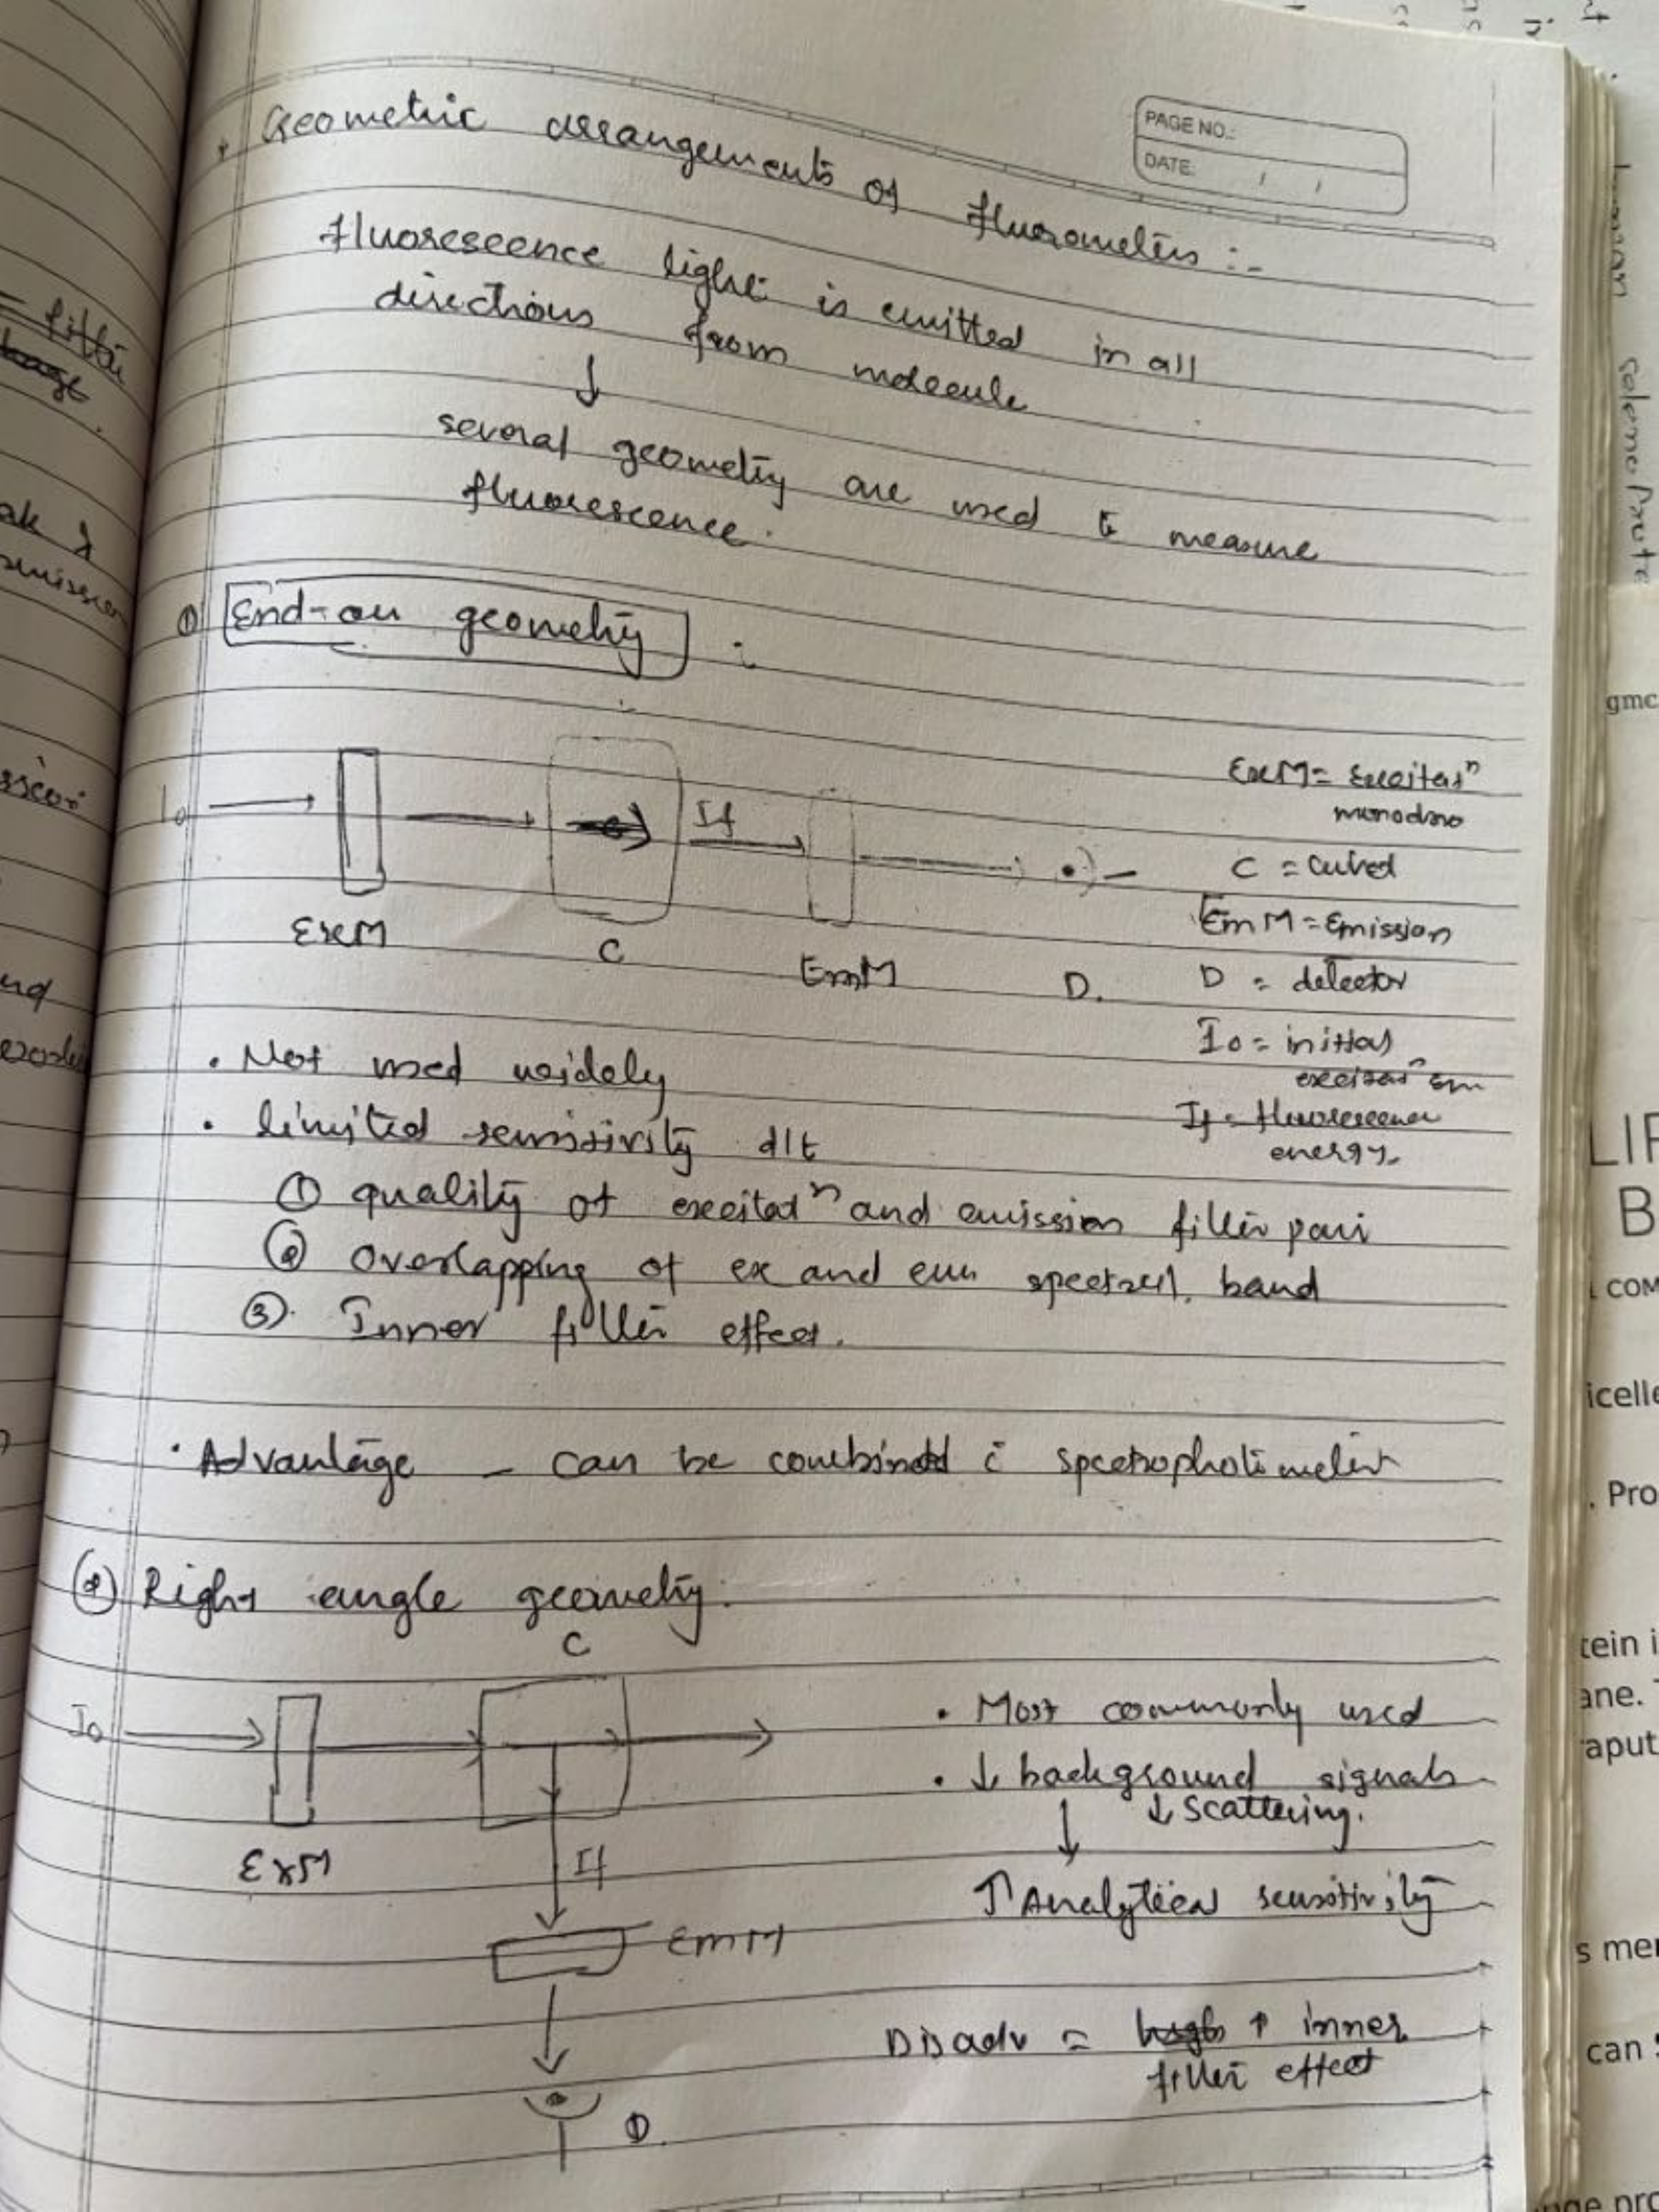 PAGE NO.:
DATE: / /
Geometric arrangements of fluorometers :-
fluorescence light is emitted in all
directions from molecule
↓
several geometry are used to measure
fluorescence.
① End-on geometry :
I₀
If
ExM
C
EmM
D.
ExM = Excitatⁿ
monochro
C = Cuved
EmM = Emission
D = detector
I₀ = initial
excitatⁿ em
If = fluorescence
energy.
• Not used widely
• limited sensitivity d/t
① quality of excitatⁿ and emission filter pair
② Overlapping of ex and em spectral band
③ Inner filter effect.
• Advantage - can be combined c̄ spectrophotometer
② Right angle geometry:
C
I₀
ExM
If
EmM
D.
• Most commonly used
• ↓ background signals
↓ scattering.
↓
↑ Analytical sensitivity
Disadv = high ↑ inner
filter effect
filter
ak λ
emission
gmc
LIF
B
COM
icelle
. Pro
tein i
ane.
aput
s mer
can